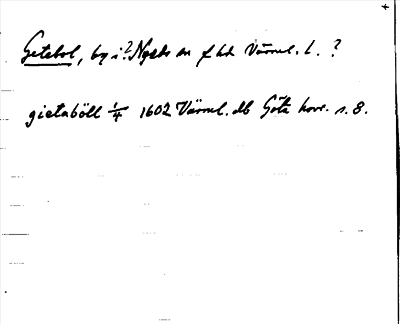 Getebol, by i? Nyeds sn f hd Värml. l. ?
gietaböll 1/4 1602 Värml. db Göta hovr. s. 8.